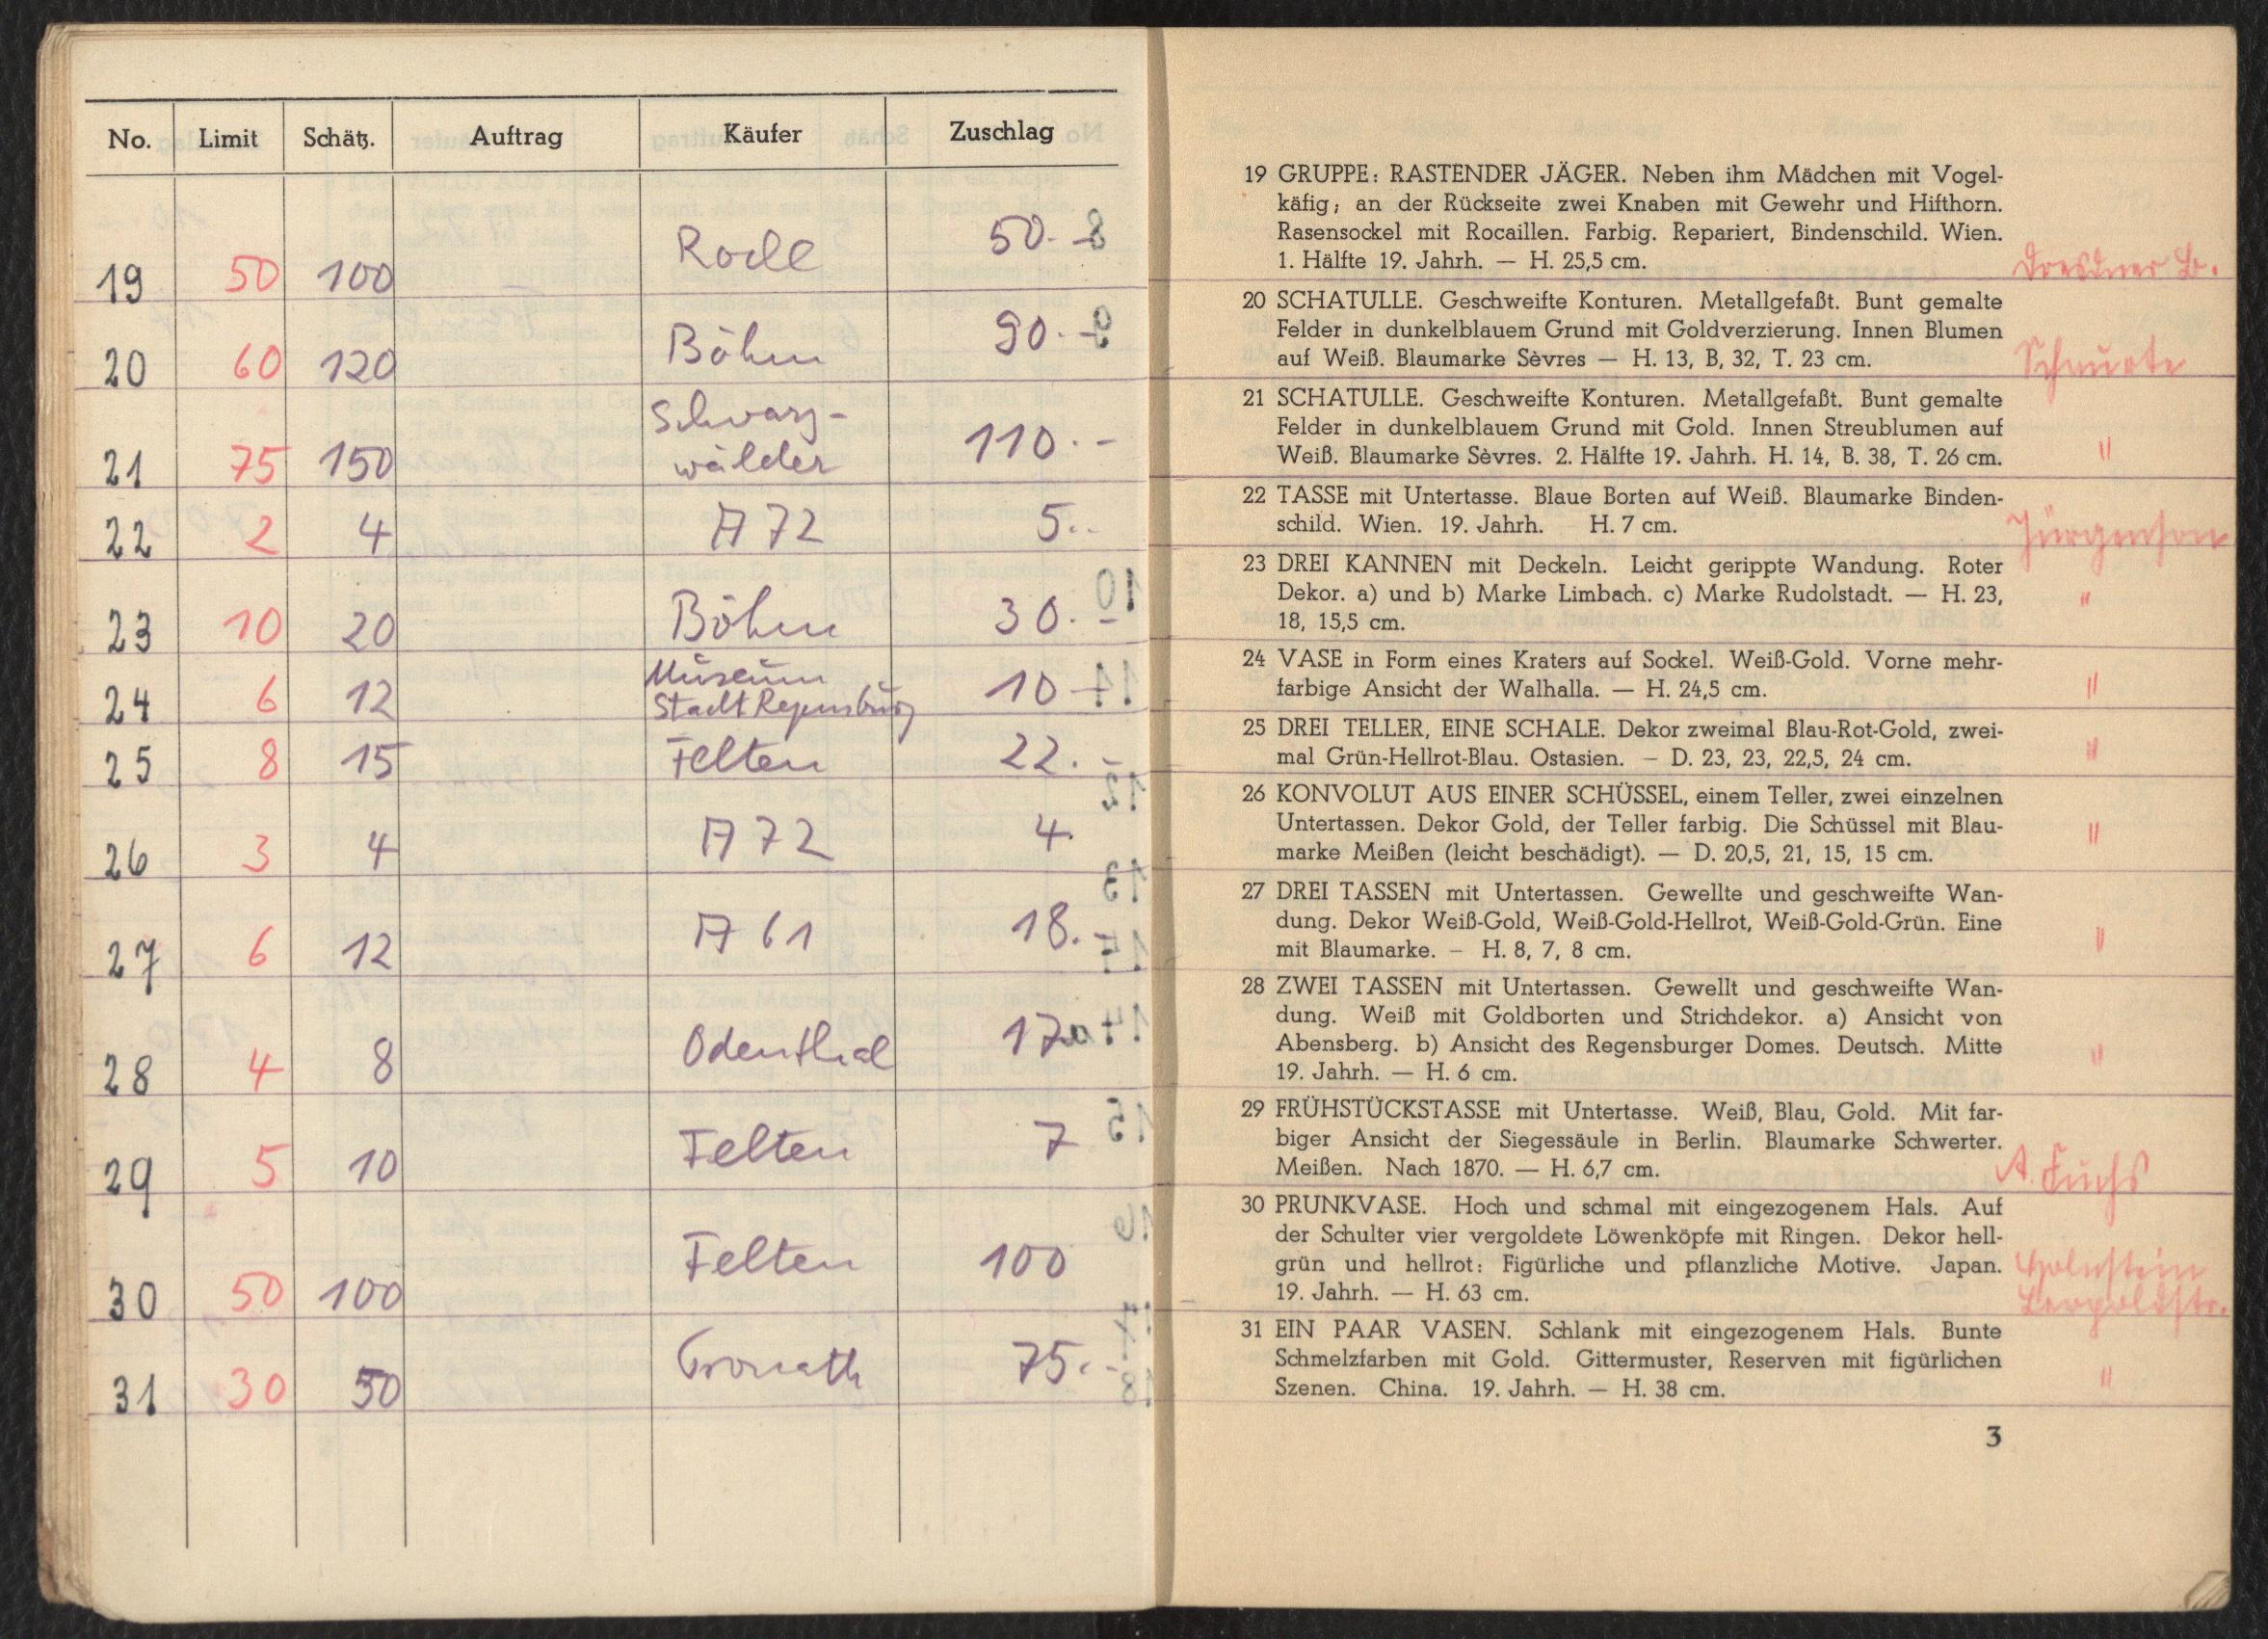 No. Limit Schätz. Auftrag Käufer Zuschlag
19 50 100 Rodl 50.-
20 60 120 Böhm 90.-
21 75 150 Schwarz-
wälder 110.-
22 2 4 A 72 5.-
23 10 20 Böhm 30.-
24 6 12 Museum
Stadt Regensburg 10.-
25 8 15 Felten 22.-
26 3 4 A 72 4.
27 6 12 A 61 18.-
28 4 8 Odenthal 17
29 5 10 Felten 7
30 50 100 Felten 100
31 30 50 75.-
19 GRUPPE: RASTENDER JÄGER. Neben ihm Mädchen mit Vogel-
käfig; an der Rückseite zwei Knaben mit Gewehr und Hifthorn.
Rasensockel mit Rocaillen. Farbig. Repariert, Bindenschild. Wien.
1. Hälfte 19. Jahrh. — H. 25,5 cm. Dresdner B.
20 SCHATULLE. Geschweifte Konturen. Metallgefaßt. Bunt gemalte
Felder in dunkelblauem Grund mit Goldverzierung. Innen Blumen
auf Weiß. Blaumarke Sèvres — H. 13, B, 32, T. 23 cm.
21 SCHATULLE. Geschweifte Konturen. Metallgefaßt. Bunt gemalte
Felder in dunkelblauem Grund mit Gold. Innen Streublumen auf
Weiß. Blaumarke Sèvres. 2. Hälfte 19. Jahrh. H. 14, B. 38, T. 26 cm. "
22 TASSE mit Untertasse. Blaue Borten auf Weiß. Blaumarke Binden-
schild. Wien. 19. Jahrh. H. 7 cm. Jürgenson
23 DREI KANNEN mit Deckeln. Leicht gerippte Wandung. Roter
Dekor. a) und b) Marke Limbach. c) Marke Rudolstadt. — H. 23, "
18, 15,5 cm.
24 VASE in Form eines Kraters auf Sockel. Weiß-Gold. Vorne mehr-
farbige Ansicht der Walhalla. — H. 24,5 cm. "
25 DREI TELLER, EINE SCHALE. Dekor zweimal Blau-Rot-Gold, zwei-
mal Grün-Hellrot-Blau. Ostasien. – D. 23, 23, 22,5, 24 cm. "
26 KONVOLUT AUS EINER SCHÜSSEL, einem Teller, zwei einzelnen
Untertassen. Dekor Gold, der Teller farbig. Die Schüssel mit Blau- "
marke Meißen (leicht beschädigt). — D. 20,5, 21, 15, 15 cm.
27 DREI TASSEN mit Untertassen. Gewellte und geschweifte Wan-
dung. Dekor Weiß-Gold, Weiß-Gold-Hellrot, Weiß-Gold-Grün. Eine
mit Blaumarke. – H. 8, 7, 8 cm. "
28 ZWEI TASSEN mit Untertassen. Gewellt und geschweifte Wan-
dung. Weiß mit Goldborten und Strichdekor. a) Ansicht von
Abensberg. b) Ansicht des Regensburger Domes. Deutsch. Mitte "
19. Jahrh. — H. 6 cm.
29 FRÜHSTÜCKSTASSE mit Untertasse. Weiß, Blau, Gold. Mit far-
biger Ansicht der Siegessäule in Berlin. Blaumarke Schwerter.
Meißen. Nach 1870. — H. 6,7 cm. A. Fuchs
30 PRUNKVASE. Hoch und schmal mit eingezogenem Hals. Auf
der Schulter vier vergoldete Löwenköpfe mit Ringen. Dekor hell-
grün und hellrot: Figürliche und pflanzliche Motive. Japan. Holnstein
19. Jahrh. — H. 63 cm. Leopoldstr.
31 EIN PAAR VASEN. Schlank mit eingezogenem Hals. Bunte
Schmelzfarben mit Gold. Gittermuster, Reserven mit figürlichen
Szenen. China. 19. Jahrh. — H. 38 cm. "
3